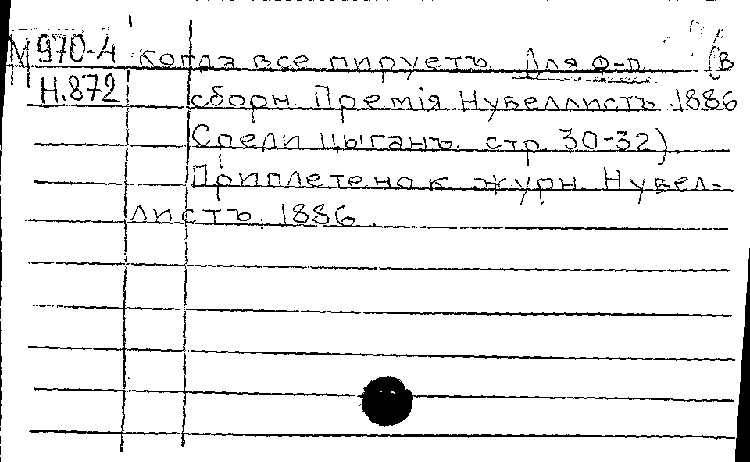 М 970-4 Когда все пируетъ Для ф-п. (В
Н.872 сборн. Премія Нувеллистъ 1886
Среди цыганъ. стр. 30-32).
Приплетено к журн. Нувел-
листъ, 1886.